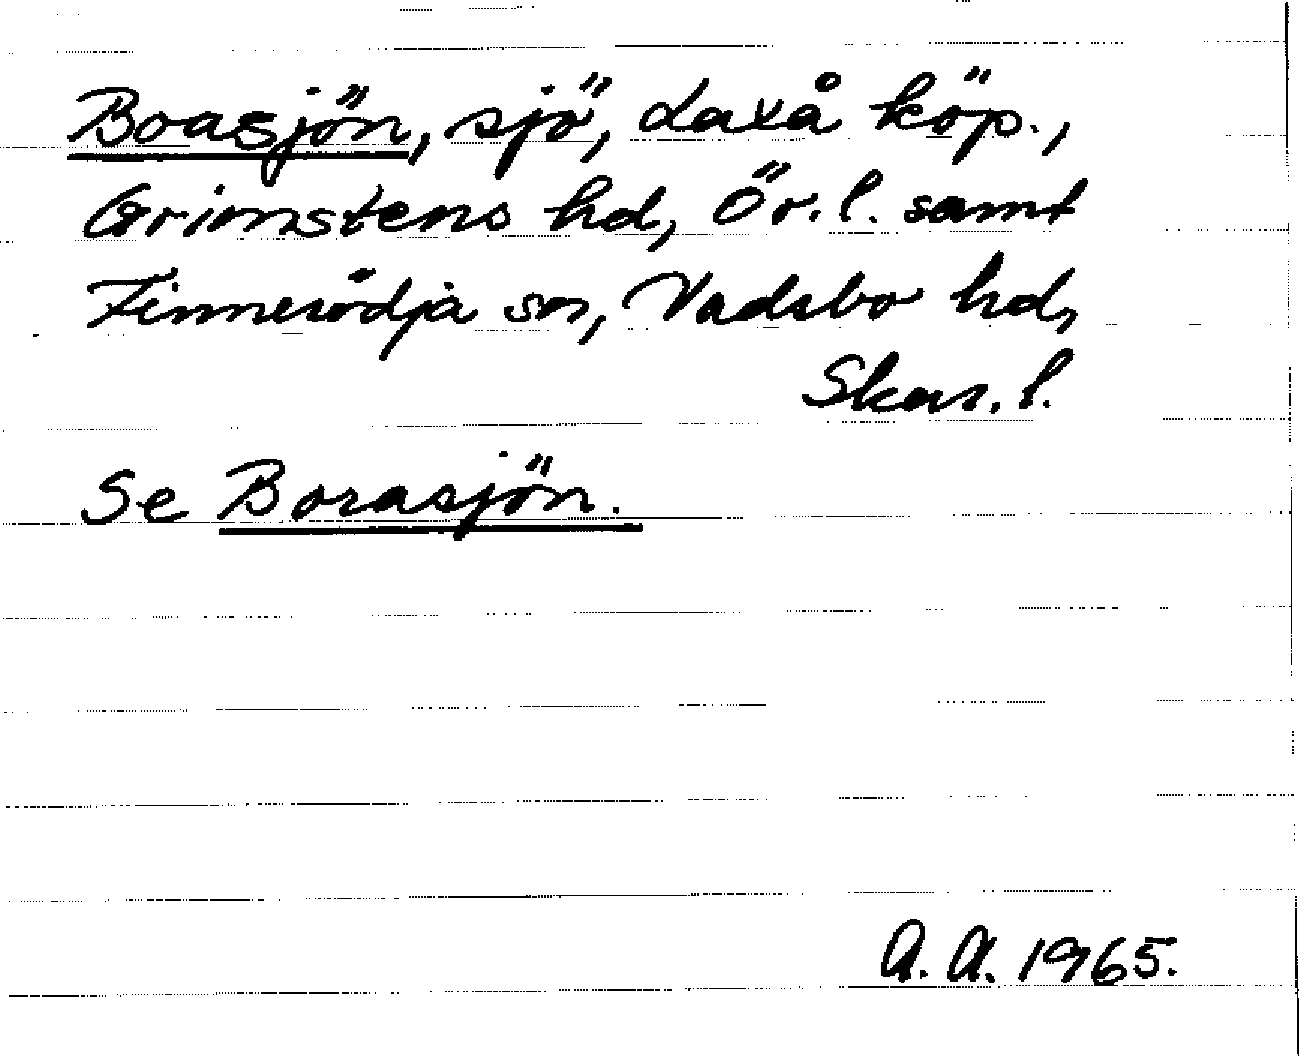 Boasjön, sjö, Laxå köp.,
Grimstens hd, Ör. l. samt
Finnerödja sn, Vadsbo hd,
Skar. l.
Se Borasjön.
A. A. 1965.